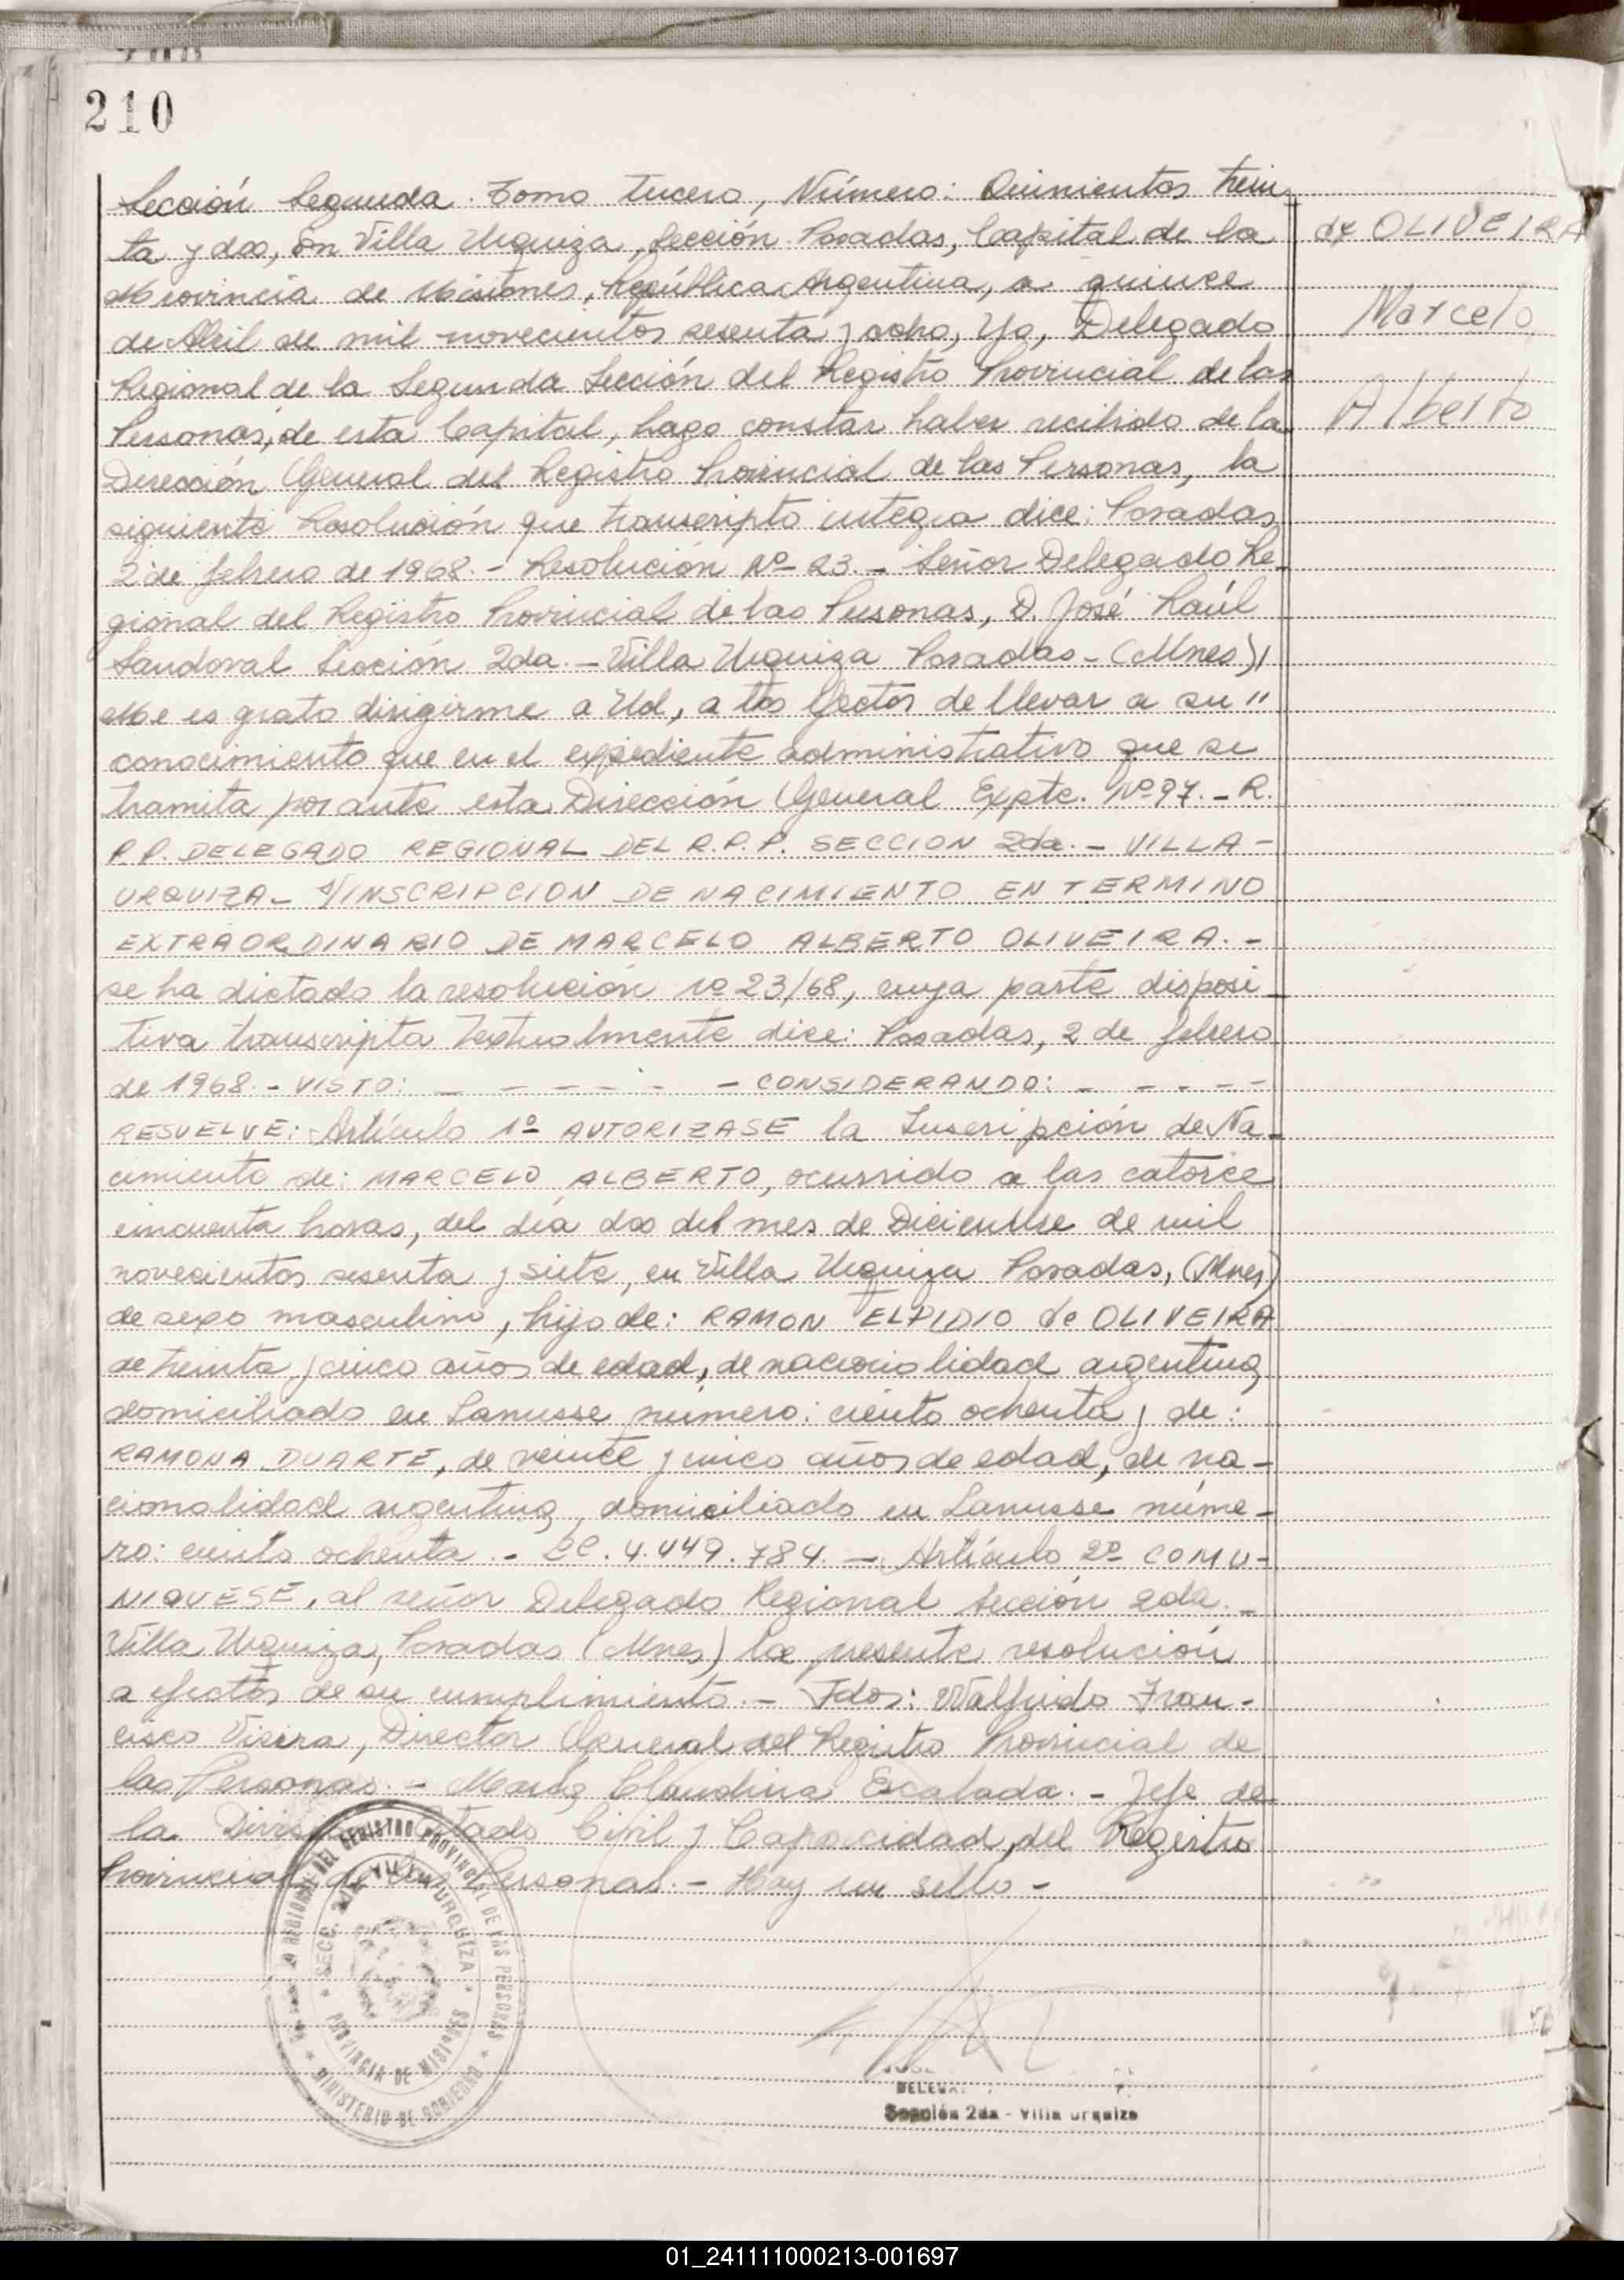 210
Sección Segunda. Tomo tercero, Número: Quinientos trein-
ta y dos, En Villa Urquiza, Sección Posadas, Capital de la
de OLIVEIRA
Provincia de Misiones, República Argentina, a quince
Marcelo
de Abril de mil novecientos sesenta y ocho, Yo, Delegado
Regional de la Segunda Sección del Registro Provincial de las
Alberto
Personas, de esta Capital, hago constar haber recibido de la
Dirección General del Registro Provincial de las Personas, la
siguiente Resolución que transcripto integra dice: Posadas,
2 de febrero de 1968.- Resolución Nº 23.- Señor Delegado Re-
gional del Registro Provincial de las Personas, D. José Raúl
Sandoval Sección 2da.- Villa Urquiza Posadas-(Mnes),
Me es grato dirigirme a Ud, a los efectos de llevar a su "
conocimiento que en el expediente administrativo que se
tramita por ante esta Dirección General Expte. Nº 97.- R.
P.P. DELEGADO REGIONAL DEL R.P.P. SECCION 2da.- VILLA-
URQUIZA- S/INSCRIPCION DE NACIMIENTO EN TERMINO
EXTRAORDINARIO DE MARCELO ALBERTO OLIVEIRA.-
se ha dictado la resolución nº 23/68, cuya parte disposi-
tiva transcripta textualmente dice: Posadas, 2 de febrero
de 1968.- VISTO: - - - - - - - CONSIDERANDO: - - - - -
RESUELVE: Artículo 1º AUTORIZASE la Inscripción de Na-
cimiento de: MARCELO ALBERTO, ocurrido a las catorce
cincuenta horas, del día dos del mes de Diciembre de mil
novecientos sesenta y siete, en Villa Urquiza Posadas, (Mnes)
de sexo masculino, hijo de: RAMON ELPIDIO de OLIVEIRA
de treinta y cinco años de edad, de nacionalidad argentina,
domiciliado en Lanusse número: ciento ochenta y de:
RAMONA DUARTE, de veinte y cinco años de edad, de na-
cionalidad argentina, domiciliado en Lanusse núme-
ro: ciento ochenta.- LC. 4.449.784.- Artículo 2º COMU-
NIQUESE, al señor Delegado Regional Sección 2da.-
Villa Urquiza, Posadas (Mnes) la presente resolución
a efectos de su cumplimiento.- Fdos: Walfrido Fran-
cisco Vieira, Director General del Registro Provincial de
las Personas.- María Claudina Escalada.- Jefe de
la División Estado Civil y Capacidad, del Registro
Provincial de las Personas.- Hay un sello-
REGIONAL DEL REGISTRO PROVINCIAL DE LAS PERSONAS
SECC. 2da VILLA URQUIZA
PROVINCIA DE MISIONES
MINISTERIO DE GOBIERNO
Sección 2da - Villa Urquiza
01_241111000213-001697